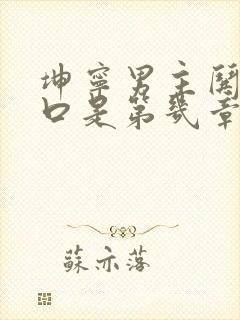 坤寧男主關
口是第幾章
蘇亦落